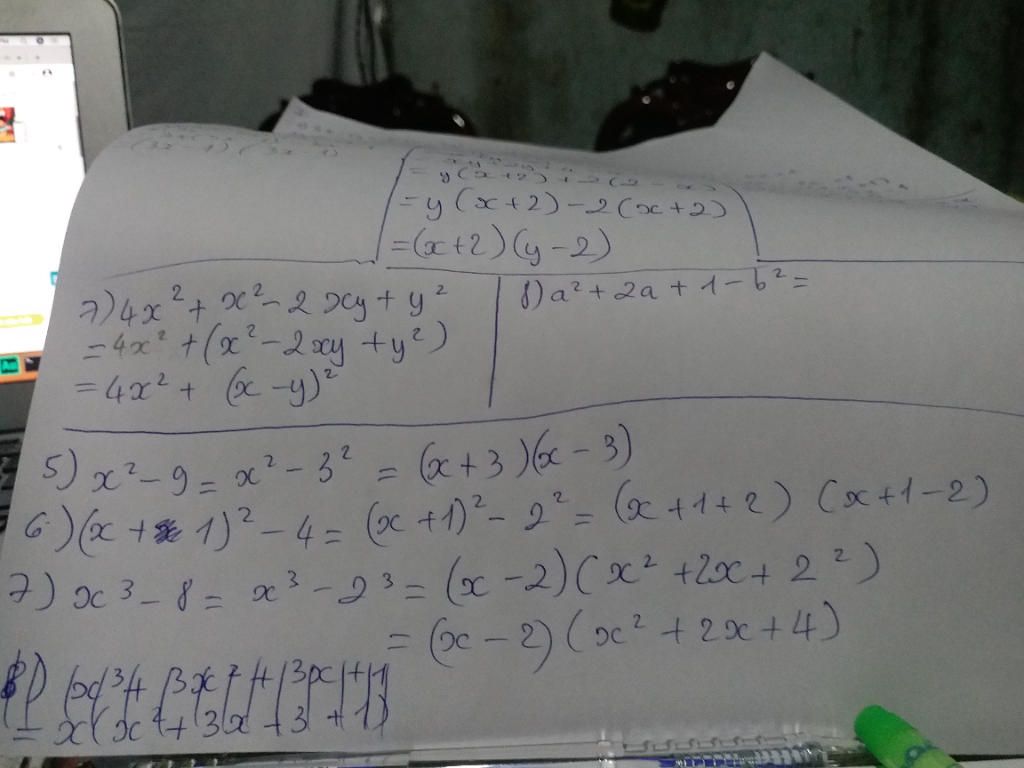 = y(x+2)
= y(x+2) - 2(x+2)
= (x+2)(y-2)
7) 4x² + x² - 2xy + y²
= 4x² + (x² - 2xy + y²)
= 4x² + (x - y)²
8) a² + 2a + 1 - b² =
5) x² - 9 = x² - 3² = (x+3)(x-3)
6) (x + 1)² - 4 = (x+1)² - 2² = (x+1+2) (x+1-2)
7) x³ - 8 = x³ - 2³ = (x-2)(x² + 2x + 2²)
= (x-2)(x² + 2x + 4)
8) x³ + 3x² + 3x + 1